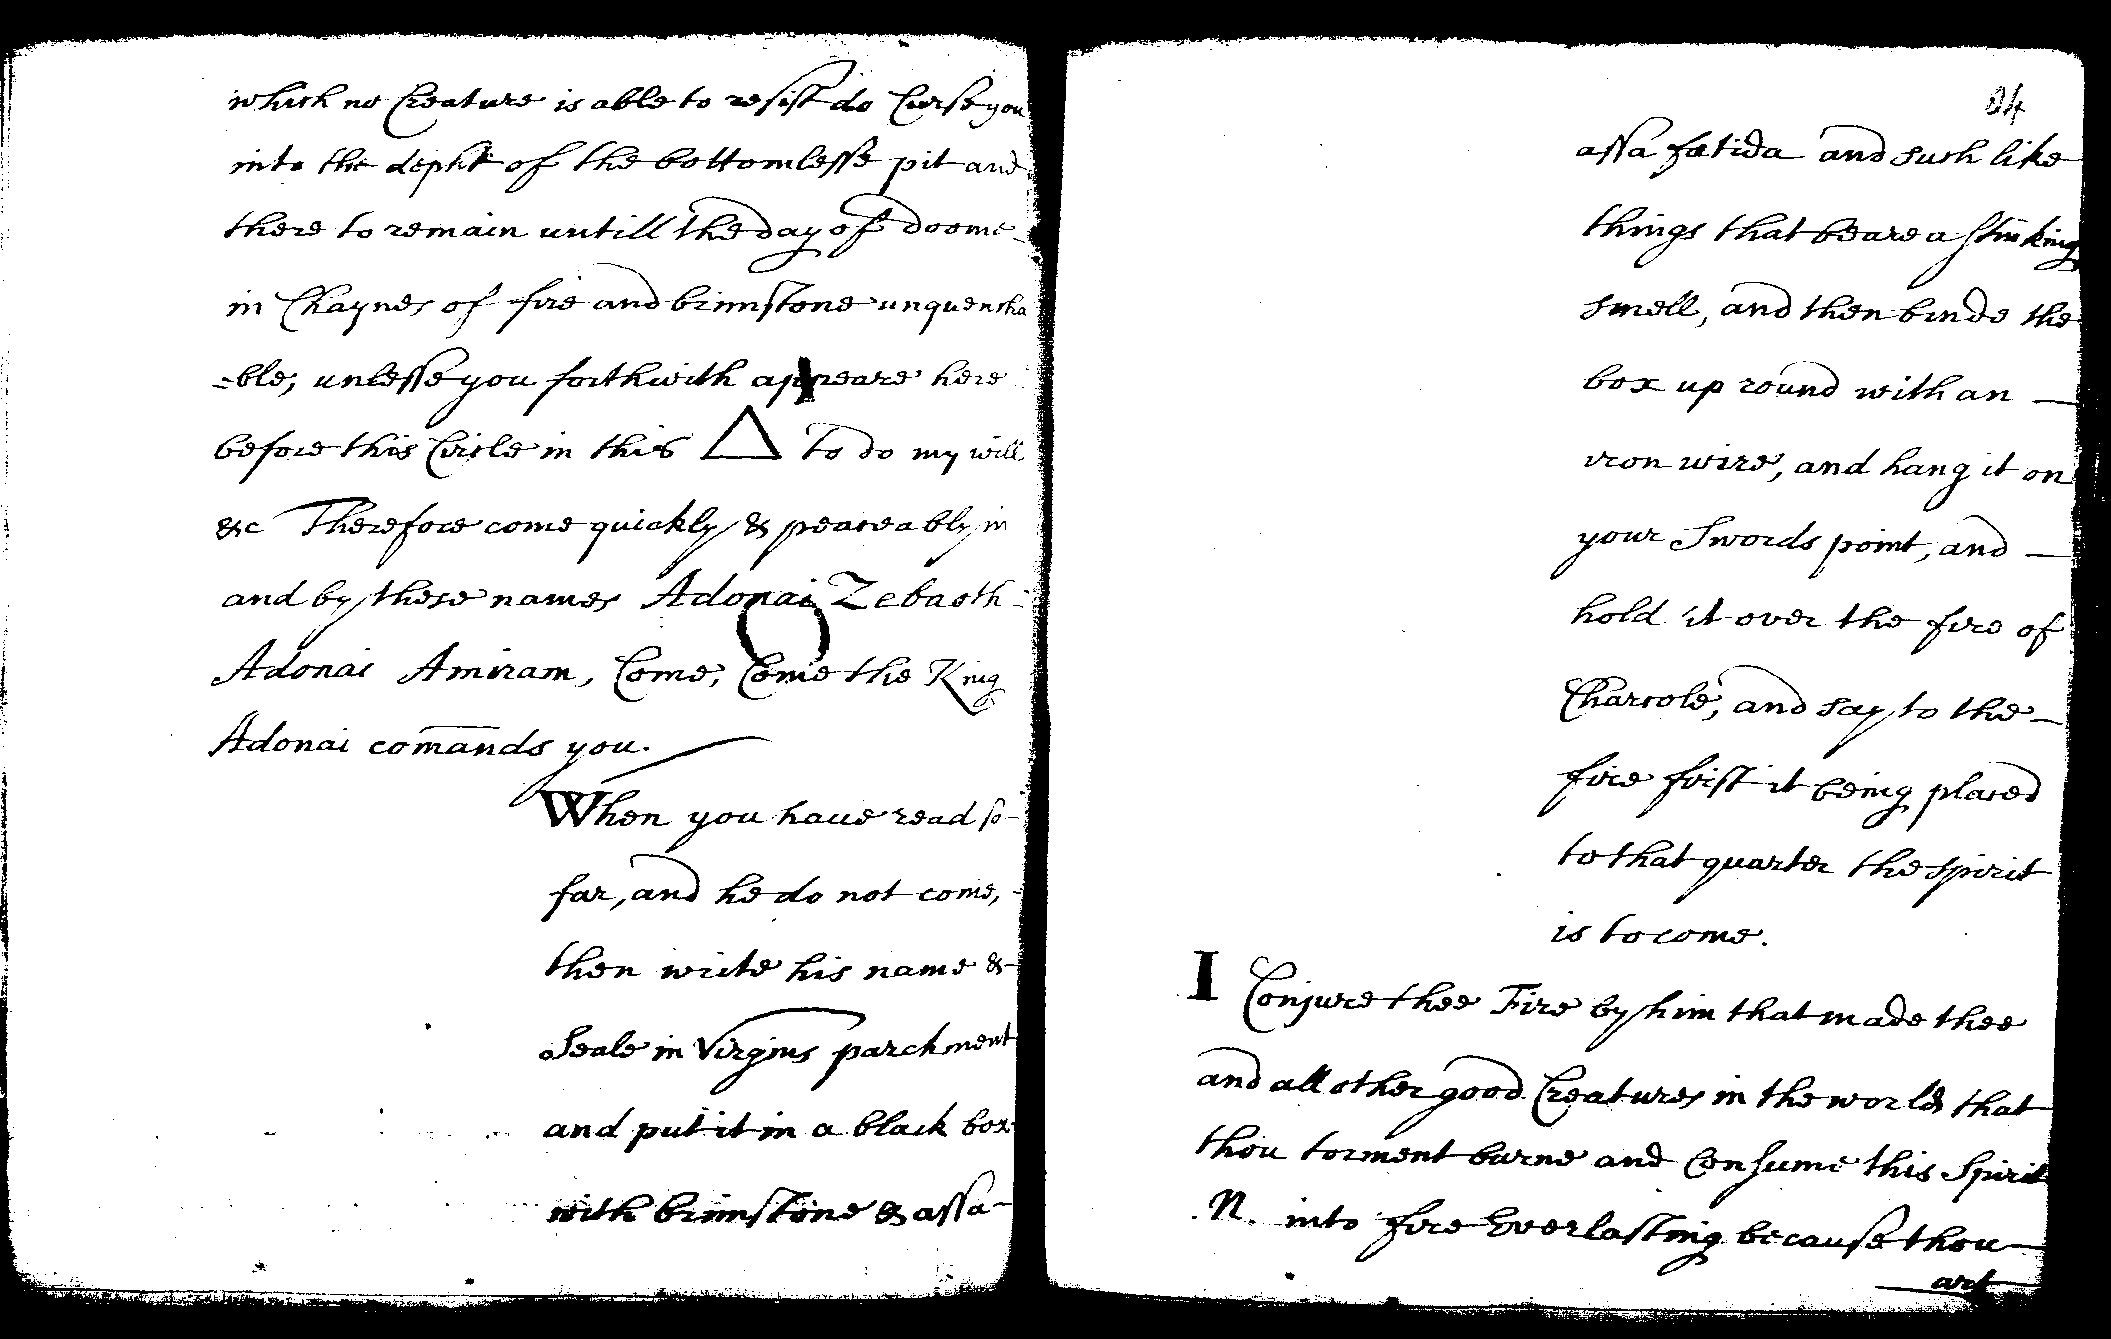 which no Creature is able to resist do Curse you
into the depht of the bottomlesse pit and
there to remain untill the day of doome
in Chaynes of fire and brimstone unquencha
=ble, unlesse you forthwith appeare here
before this Circle in this △ to do my will
&c Therefore come quickly & peaceably in
and by these names Adonai Zebaoth
Adonai Amiram, Come, Come the King
Adonai comands you.
When you have read so
far, and he do not come,
then write his name &
Seale in Virgins parchment
and put it in a black box
with brimstone & assa
assa fœtida and such like
things that beare a stinking
smell, and then binde the
box up round with an
iron wire, and hang it on
your Swords point, and
hold it over the fire of
Charcole, and say to the
fire first it being placed
to that quarter the spirit
is to come.
I Conjure thee Fire by him that made thee
and all other good Creatures in the world that
thou torment burne and Consume this Spirit
.N. into fire Everlasting because thou
art